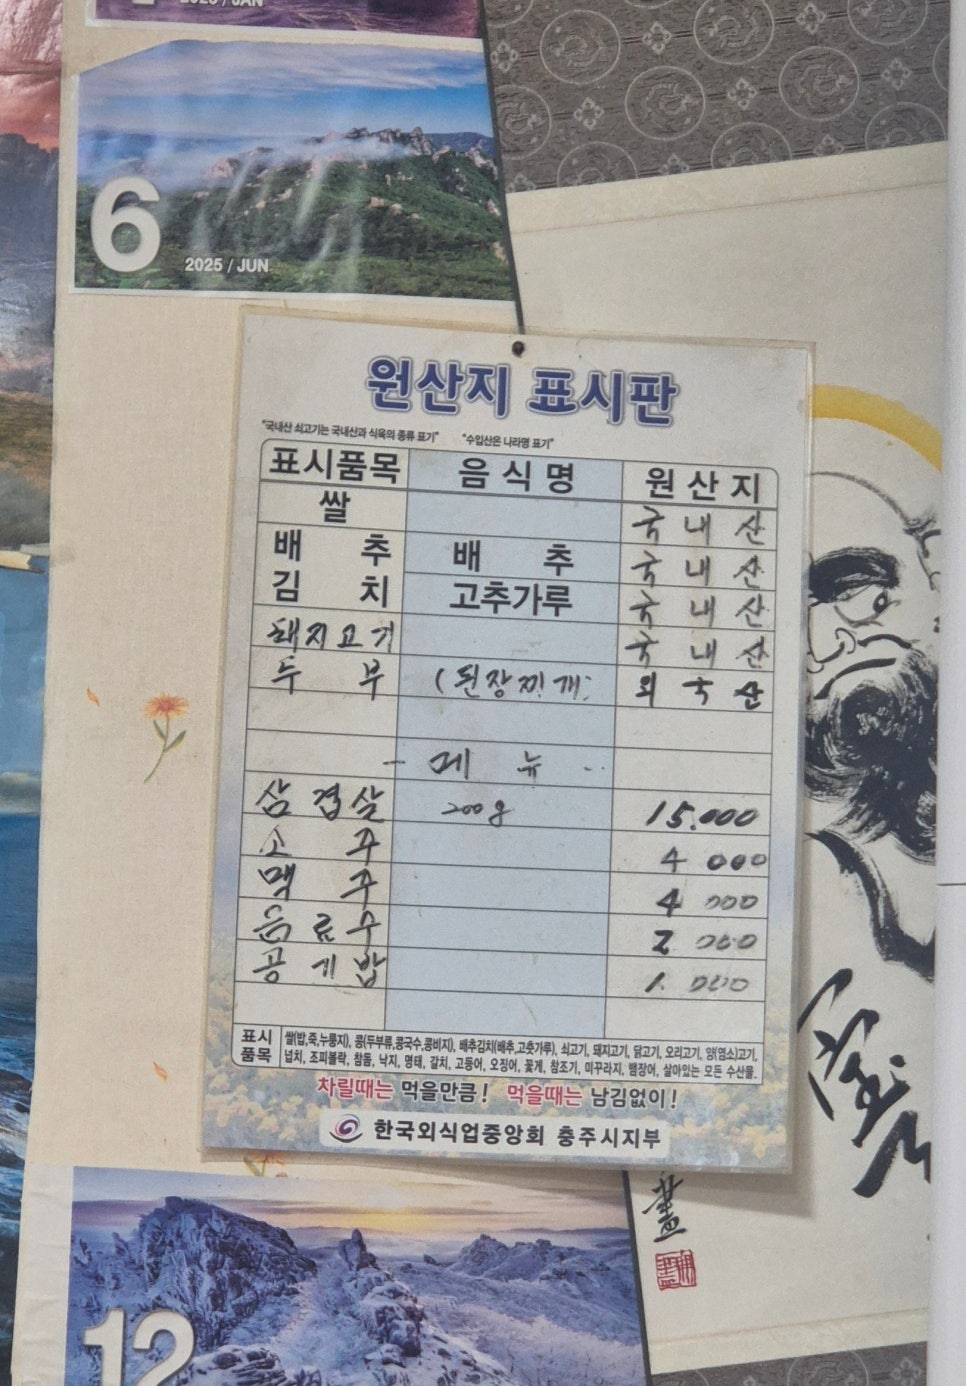 2025 / JAN
6
2025 / JUN
원산지 표시판
"국내산 쇠고기는 국내산과 식육의 종류 표기" "수입산은 나라명 표기"
표시품목 음식명 원산지
쌀 국내산
배추 배추 국내산
김치 고추가루 국내산
돼지고기 국내산
두부 (된장찌개) 외국산
- 메뉴 -
삼겹살 200g 15.000
소주 4 000
맥주 4 000
음료수 2 000
공기밥 1. 000
표시 품목 쌀(밥,죽,누룽지), 콩(두부류,콩국수,콩비지), 배추김치(배추,고춧가루), 쇠고기, 돼지고기, 닭고기, 오리고기, 양(염소)고기,
넙치, 조피볼락, 참돔, 낙지, 명태, 갈치, 고등어, 오징어, 꽃게, 참조기, 미꾸라지, 뱀장어, 살아있는 모든 수산물.
차릴때는 먹을만큼! 먹을때는 남김없이!
한국외식업중앙회 충주시지부
12